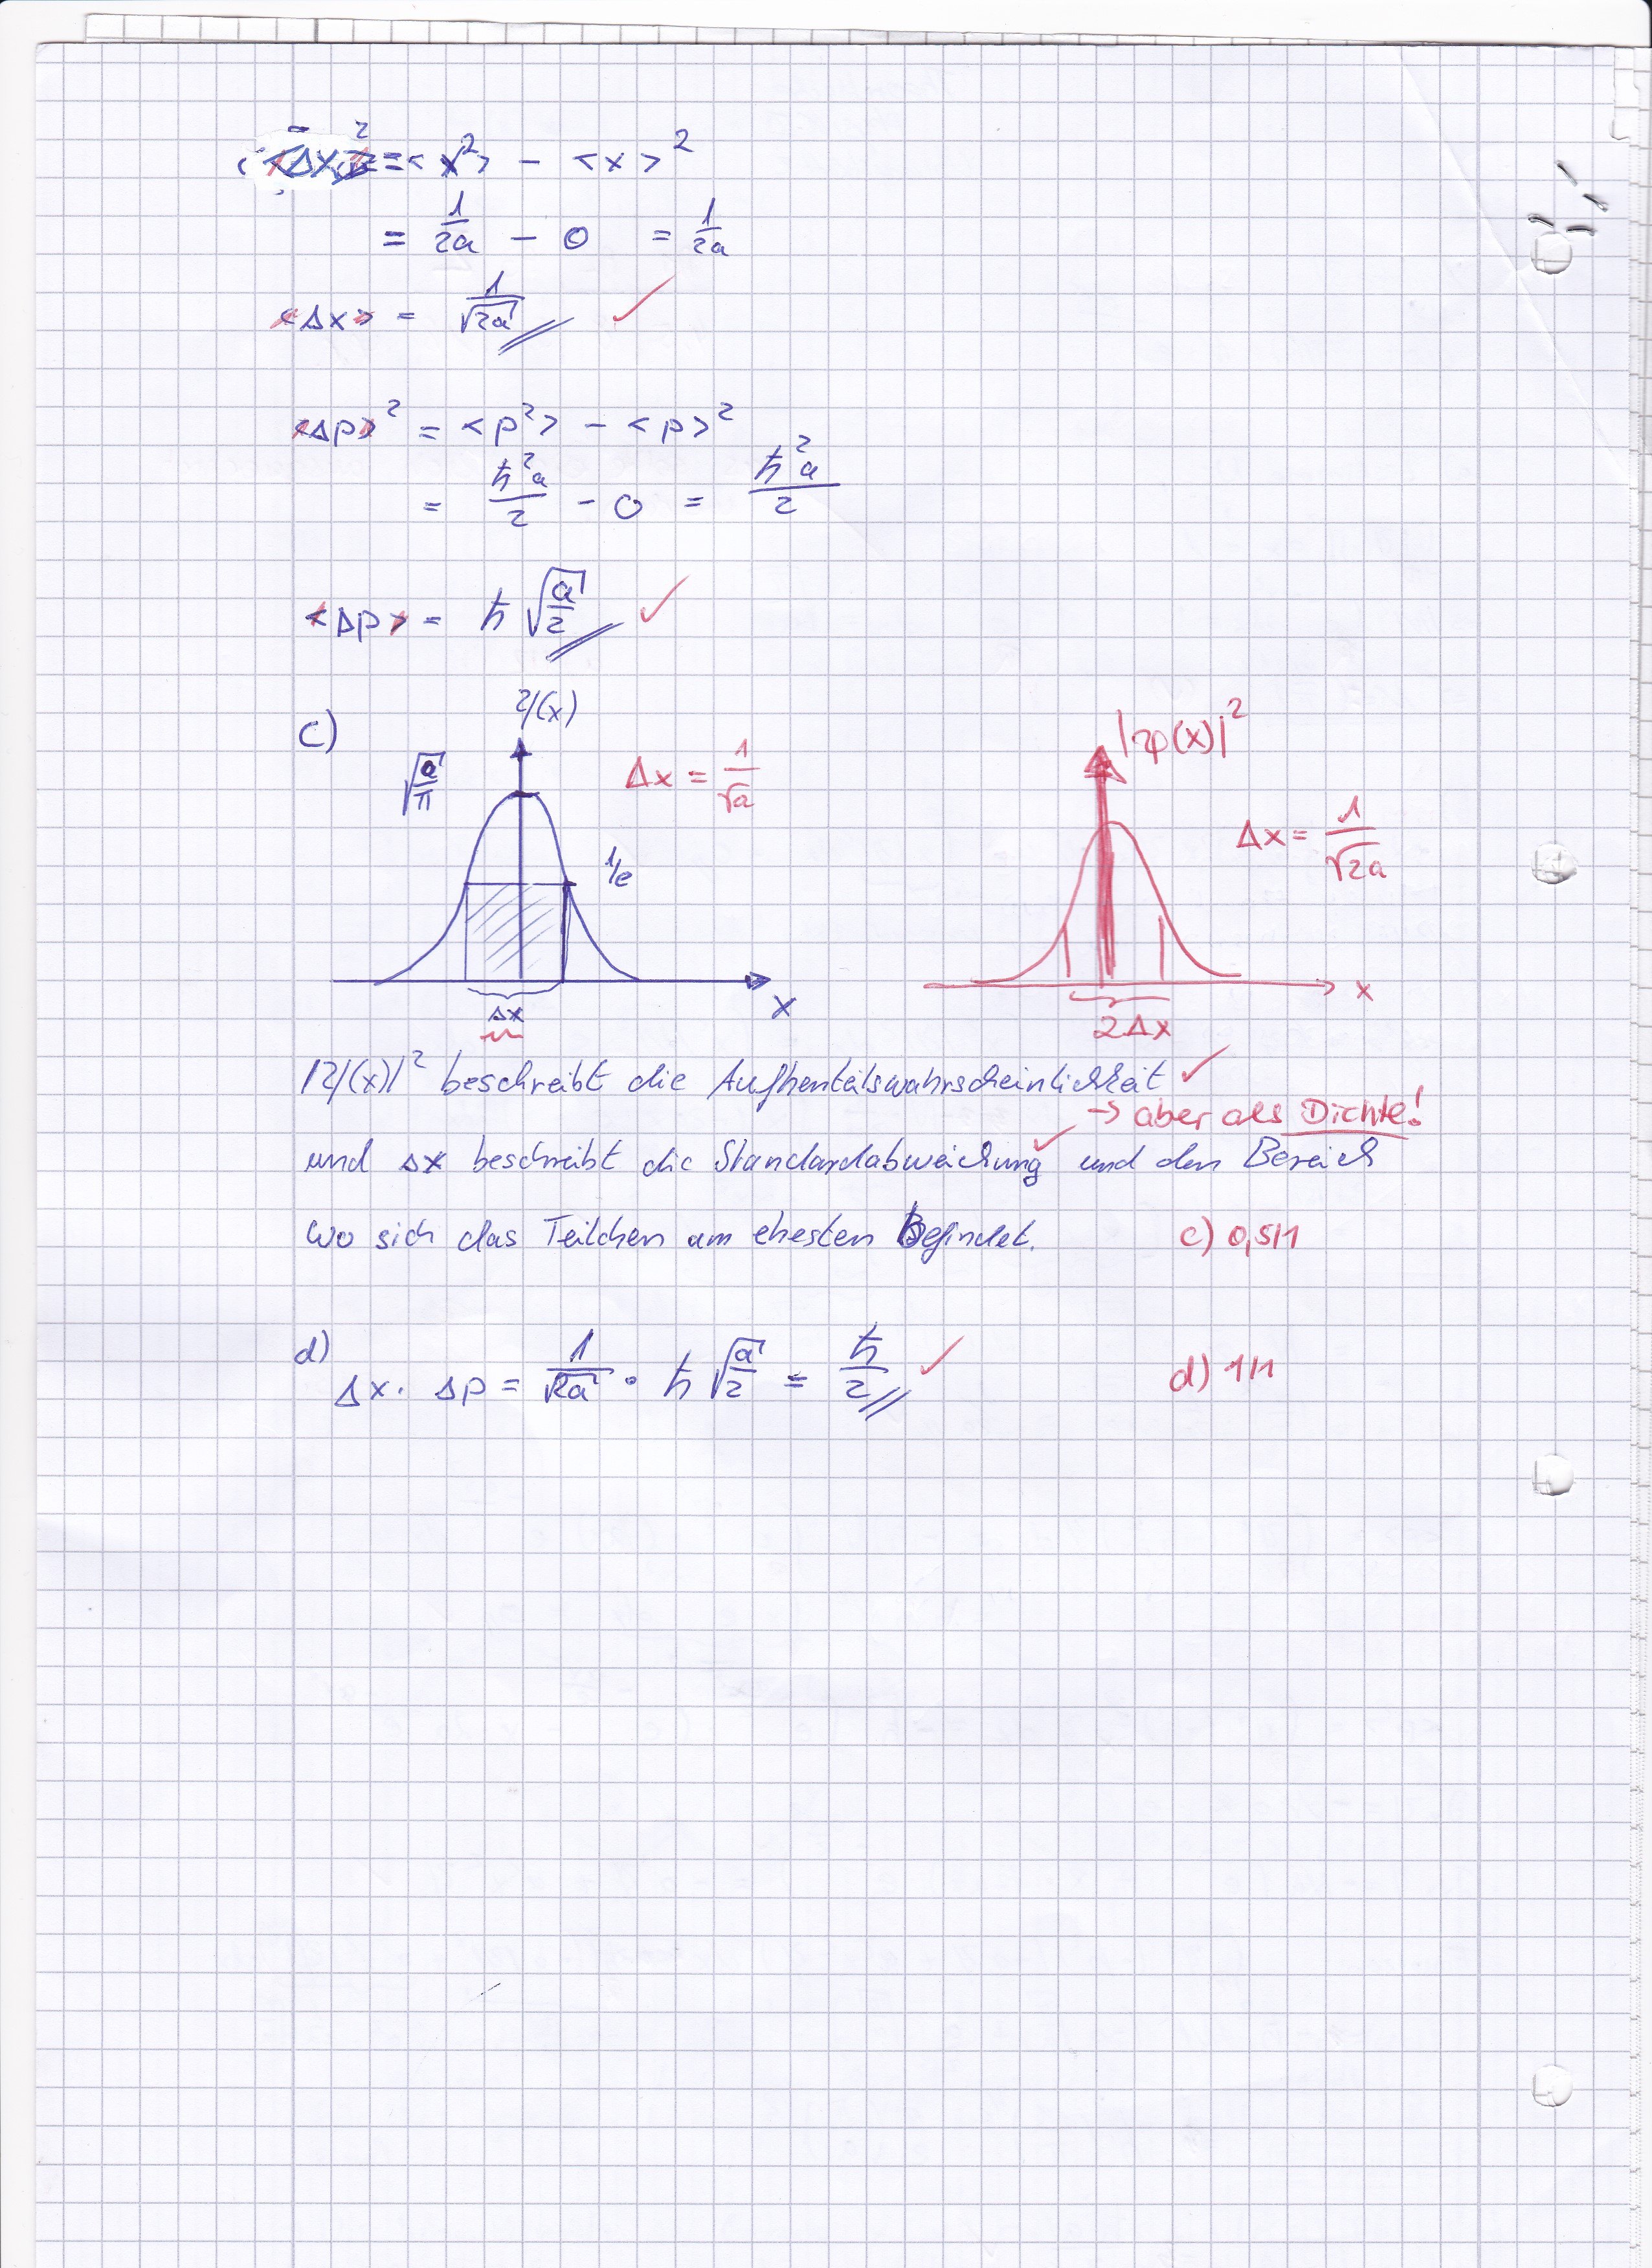 <Δx>² = <x²> - <x>²
= 1/2a - 0 = 1/2a
<Δx> = 1/√2a ✓
<Δp>² = <p²> - <p>²
= ħ²a/2 - 0 = ħ²a/2
<Δp> = ħ √a/2 ✓
c)
ψ(x)
√a/π
Δx = 1/√a
1/e
x
Δx
|ψ(x)|²
Δx = 1/√2a
x
2Δx
|ψ(x)|² beschreibt die Aufhentalswahrscheinlichkeit ✓
→ aber als Dichte!
und Δx beschreibt die Standardabweichung ✓ und den Bereich
wo sich das Teilchen am ehesten Befindet. c) 0,5/1
d) Δx · Δp = 1/√2a · ħ √a/2 = ħ/2 ✓ d) 1/1